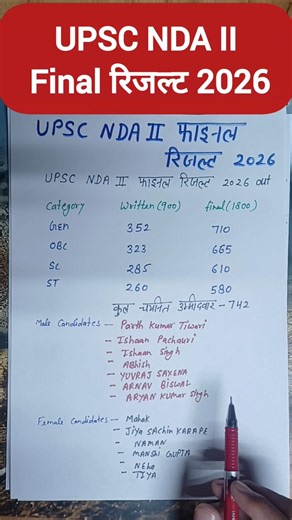 UPSC NDA II
Final रिजल्ट 2026
UPSC NDA II फाइनल
रिजल्ट 2026
UPSC NDA II फाइनल रिजल्ट 2026 out
Category Written(900) final(1800)
GEN 352 710
OBC 323 665
SC 285 610
ST 260 580
कुल चयनित उम्मीदवार - 742
Male Candidates - Parth Kumar Tiwari
- Ishaan Pachauri
- Ishaan Singh
- Abhish
- YUVRAJ SAXENA
- ARNAV BISWAL
- ARYAN KUMAR Singh
Female Candidates - Mahak
- Jiya SAchin KARAPE
- NAMAN
- MANSHI GUPTA
- Neha
- TIYA